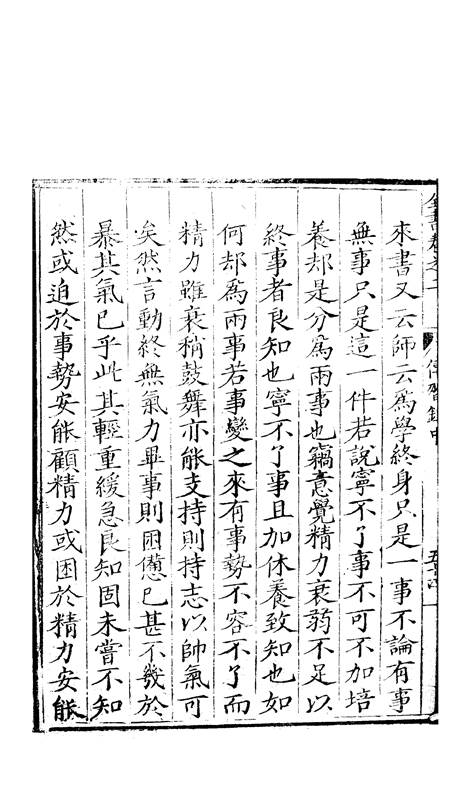 來書又云師云為學終身只是一事不論有事
無事只是這一件若說寧不了事不可不加培
養却是分為兩事也竊意覺精力衰弱不足以
終事者良知也寧不了事且加休養致知也如
何却為兩事若事變之來有事勢不容不了而
精力雖衰稍鼓舞亦能支持則持志以帥氣可
矣然言動終無氣力畢事則困憊已甚不幾於
暴其氣已乎此其輕重緩急良知固未嘗不知
然或迫於事勢安能顧精力或困於精力安能